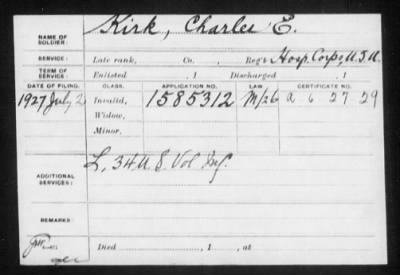 NAME OF SOLDIER: Kirk, Charles E.
SERVICE: Late rank, Co. , Reg't Hosp. Corps, U.S.A.
TERM OF SERVICE: Enlisted , 1 Discharged , 1
DATE OF FILING. CLASS. APPLICATION NO. LAW CERTIFICATE NO.
1927 July 2 Invalid, 1585312 M/26 A 6 27 29
Widow,
Minor,
ADDITIONAL SERVICES: L, 34 U.S. Vol Inf.
REMARKS:
Died , 1 , at